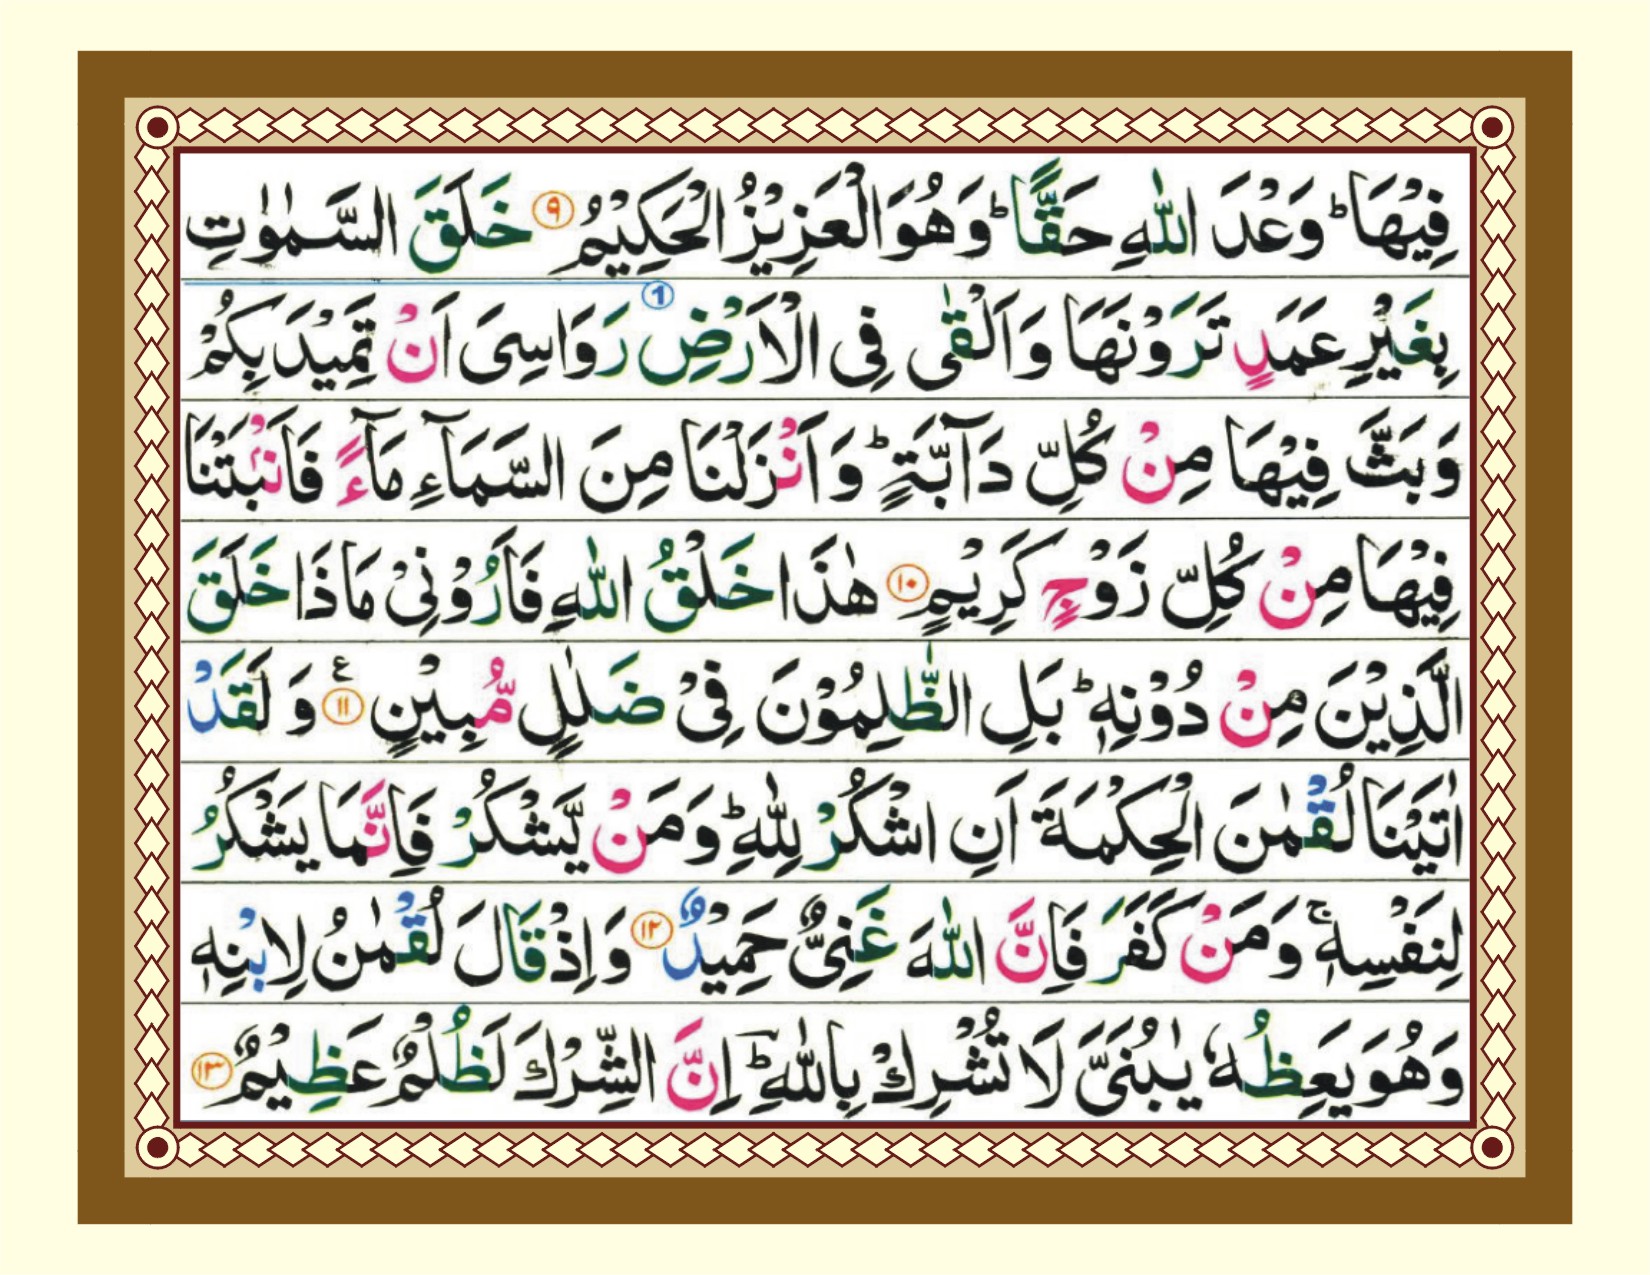 فِيْهَا ؕ وَعْدَ اللّٰهِ حَقًّا ؕ وَهُوَ الْعَزِيْزُ الْحَكِيْمُ ۹ خَلَقَ السَّمٰوٰتِ
1
بِغَيْرِ عَمَدٍ تَرَوْنَهَا وَاَلْقٰى فِى الْاَرْضِ رَوَاسِىَ اَنْ تَمِيْدَ بِكُمْ
وَبَثَّ فِيْهَا مِنْ كُلِّ دَآبَّةٍ ؕ وَاَنْزَلْنَا مِنَ السَّمَآءِ مَآءً فَاَنْۢبَتْنَا
فِيْهَا مِنْ كُلِّ زَوْجٍ كَرِيْمٍ ۱۰ هٰذَا خَلْقُ اللّٰهِ فَاَرُوْنِىْ مَاذَا خَلَقَ
الَّذِيْنَ مِنْ دُوْنِهٖ ؕ بَلِ الظّٰلِمُوْنَ فِىْ ضَلٰلٍ مُّبِيْنٍ ۱۱ ع وَلَقَدْ
اٰتَيْنَا لُقْمٰنَ الْحِكْمَةَ اَنِ اشْكُرْ لِلّٰهِ ؕ وَمَنْ يَّشْكُرْ فَاِنَّمَا يَشْكُرُ
لِنَفْسِهٖ ۚ وَمَنْ كَفَرَ فَاِنَّ اللّٰهَ غَنِىٌّ حَمِيْدٌ ۱۲ وَاِذْ قَالَ لُقْمٰنُ لِابْنِهٖ
وَهُوَ يَعِظُهٗ يٰبُنَىَّ لَا تُشْرِكْ بِاللّٰهِ ؕ اِنَّ الشِّرْكَ لَظُلْمٌ عَظِيْمٌ ۱۳